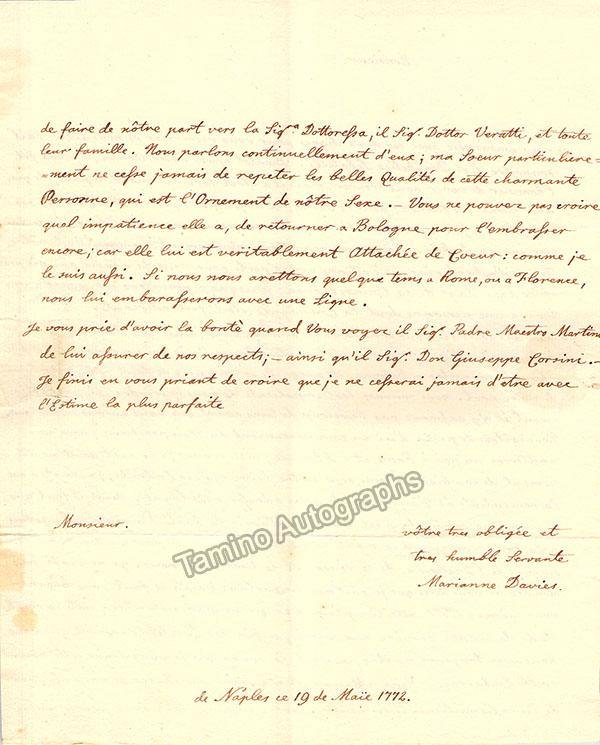 de faire de nôtre part vers la Sig.ra Dottoressa, il Sig. Dottor Veratti, et toute
leur famille. Nous parlons continuellement d'eux; ma Soeur particuliere=
=ment ne cesse jamais de repeter les belles Qualités de cette charmante
Personne, qui est l'Ornement de nôtre Sexe. – Vous ne pouvez pas croire
quel impatience elle a, de retourner a Bologne pour l'embrasser
encore; car elle lui est veritablement Attachée de Coeur: comme je
le suis aussi. Si nous nous arettons quelque tems a Rome, ou a Florence,
nous lui embarasserons avec une Ligne.
Je vous prie d'avoir la bonté quand Vous voyez il Sig. Padre Maestro Martini
de lui assurer de nos respects; – ainsi qu'il Sig. Don Giuseppe Corsini. –
Je finis en vous priant de croire que je ne cesserai jamais d'etre avec
l'Estime la plus parfaite
Monsieur.
vôtre tres obligée et
tres humble Servante
Marianne Davies.
de Náples ce 19 de Maïe 1772.
Tamino Autographs